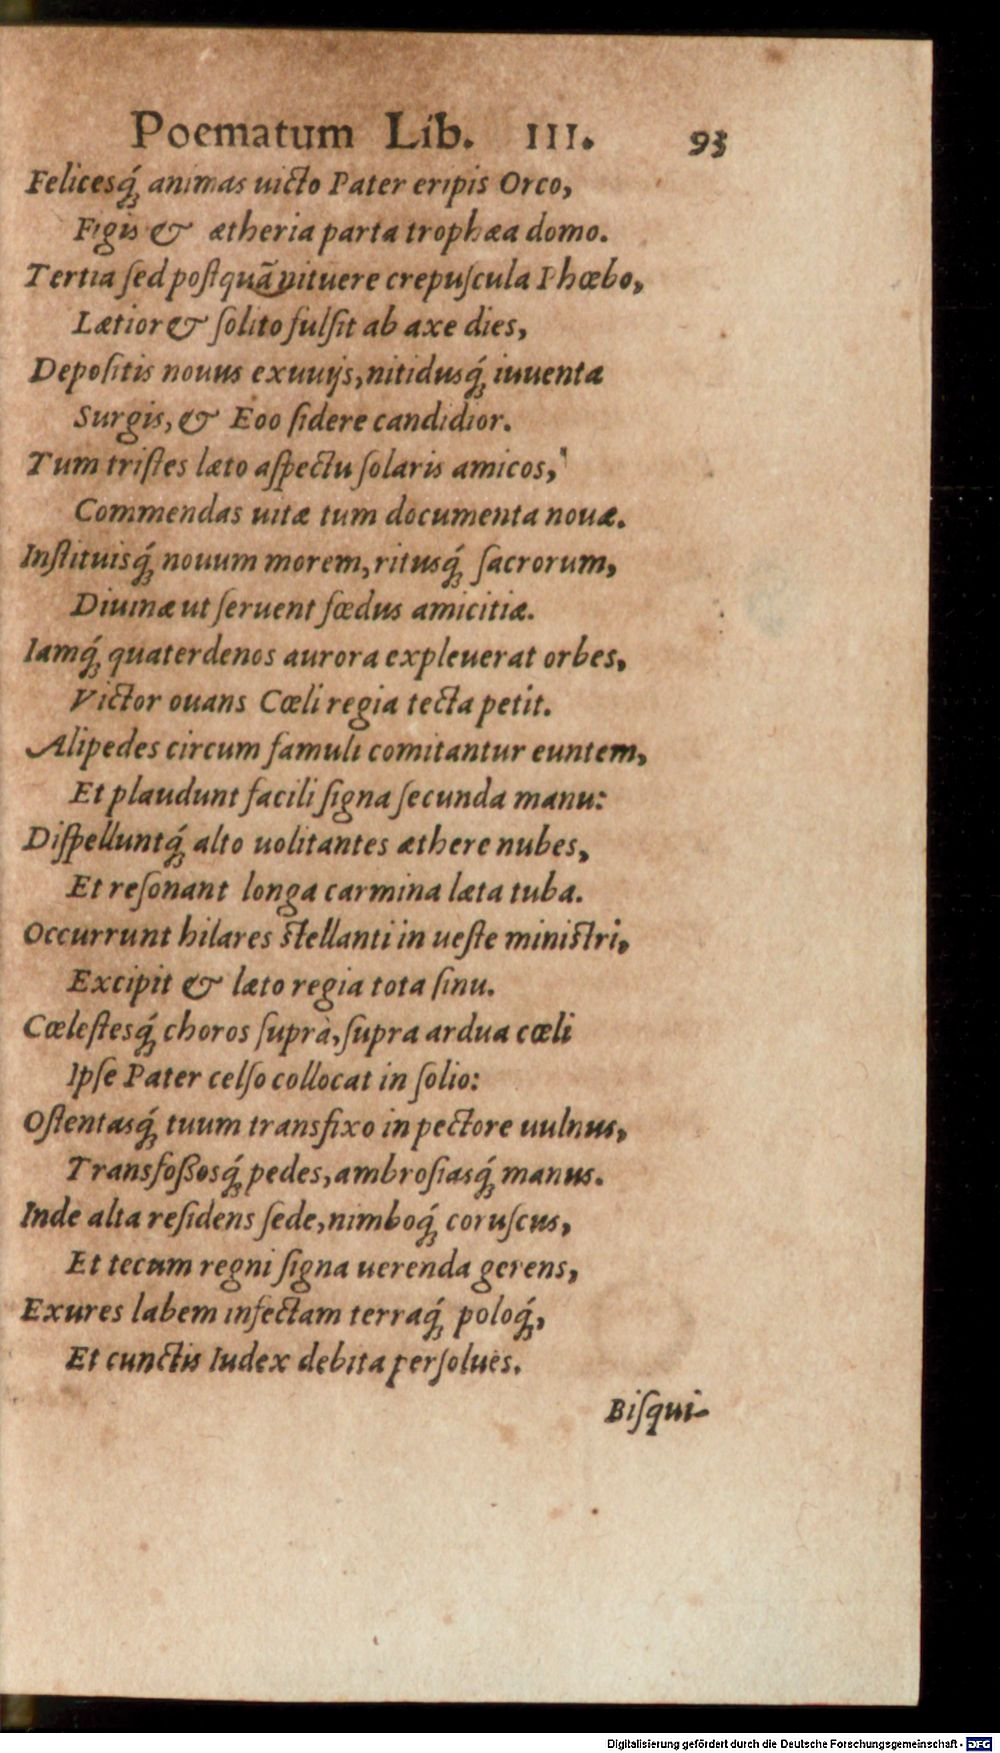 Poematum Lib. III. 93
Felicesq́ꝫ animas uicto Pater eripis Orco,
Figis & ætheria parta trophæa domo.
Tertia ſed poſtquã nituere crepuſcula Phœbo,
Lætior & ſolito fulſit ab axe dies,
Depoſitis nouus exuuijs, nitidusq́ꝫ iuuenta
Surgis, & Eoo ſidere candidior.
Tum triſtes læto aſpectu ſolaris amicos,
Commendas uitæ tum documenta nouæ.
Inſtituisq́ꝫ nouum morem, ritusq́ꝫ ſacrorum,
Diuinæ ut ſeruent fœdus amicitiæ.
Iamq́ꝫ quaterdenos aurora expleuerat orbes,
Victor ouans Cœli regia tecta petit.
Alipedes circum famuli comitantur euntem,
Et plaudunt facili ſigna ſecunda manu:
Diſpelluntq́ꝫ alto uolitantes æthere nubes,
Et reſonant longa carmina læta tuba.
Occurrunt hilares ſtellanti in ueſte miniſtri,
Excipit & læto regia tota ſinu.
Cœleſtesq́ꝫ choros ſuprà, ſupra ardua cœli
Ipſe Pater celſo collocat in ſolio:
Oſtentasq́ꝫ tuum transfixo in pectore uulnus,
Transfoßosq́ꝫ pedes, ambroſiasq́ꝫ manus.
Inde alta reſidens ſede, nimboq́ꝫ coruſcus,
Et tecum regni ſigna uerenda gerens,
Exures labem infectam terraq́ꝫ poloq́ꝫ,
Et cunctis Iudex debita perſolues.
Biſqui-
Digitalisierung gefördert durch die Deutsche Forschungsgemeinschaft - DFG